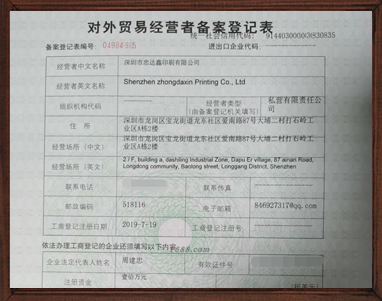 对外贸易经营者备案登记表
统一社会信用代码:
备案登记表编号: 进出口企业代码
经营者中文名称 深圳市忠达鑫印刷有限公司
经营者英文名称 Shenzhen zhongdaxin Printing Co., Ltd
组织机构代码 经营者类型 私营有限责任公
(由备案登记机关填写) 司
住 所 深圳市龙岗区宝龙街道龙东社区爱南路87号大埔二村打石岭工
业区A栋2楼
经营场所(中文) 深圳市龙岗区宝龙街道龙东社区爱南路87号大埔二村打石岭工
业区A栋2楼
经营场所(英文) 2 / F, building a, dashiling Industrial Zone, Dapu Er village, 87 ainan Road,
Longdong community, Baolong street, Longgang District, Shenzhen
联系电话 联系传真
邮政编码 518116 电子邮箱 846927317@qq.com
工商登记注册日期 2019-7-19 工商登记注册号
依法办理工商登记的企业还须填写以下内容
企业法定代表人姓名 周建忠 有效证件号
注册资金 壹佰万元